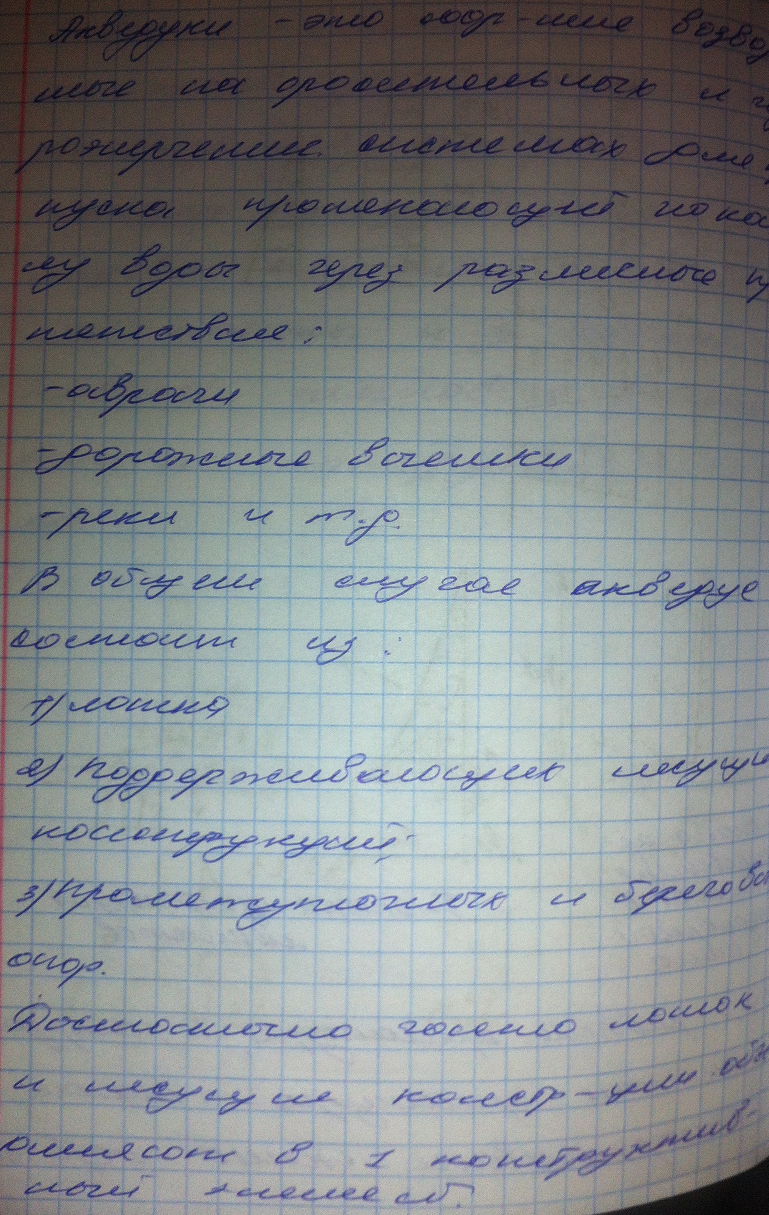 Акведуки - это соор-ние возво
мые на оросительных и г
рожерчение. системах для
пуска протекающей по кана
лу воды через различные п
пятствия:
-овраги
-дорожные выемки
-реки и т.д.
В общем случае акведук
состоит из:
1) лотка
2) Поддерживающих несущи
конструкций;
3) Промежуточных и береговы
опор.
Достаточно часто лоток
и несущие констр-ции объ
единяют в 1 конструктив-
ный элемент.